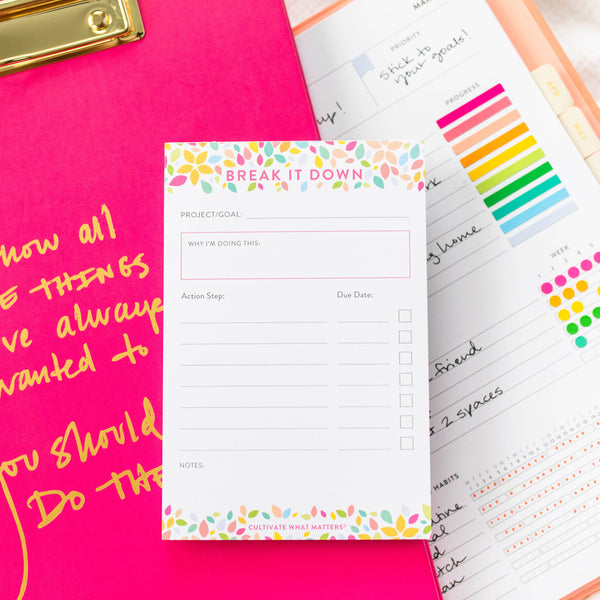 how all
THINGS
always
wanted to
you should
DO THE
BREAK IT DOWN
PROJECT/GOAL:
WHY I'M DOING THIS:
Action Step: Due Date:
NOTES:
CULTIVATE WHAT MATTERS®
PRIORITY
stick to
your goals!
PROGRESS
home
WEEK
1 2 3 4 5
friend
2 spaces
HABITS
APR
MAY